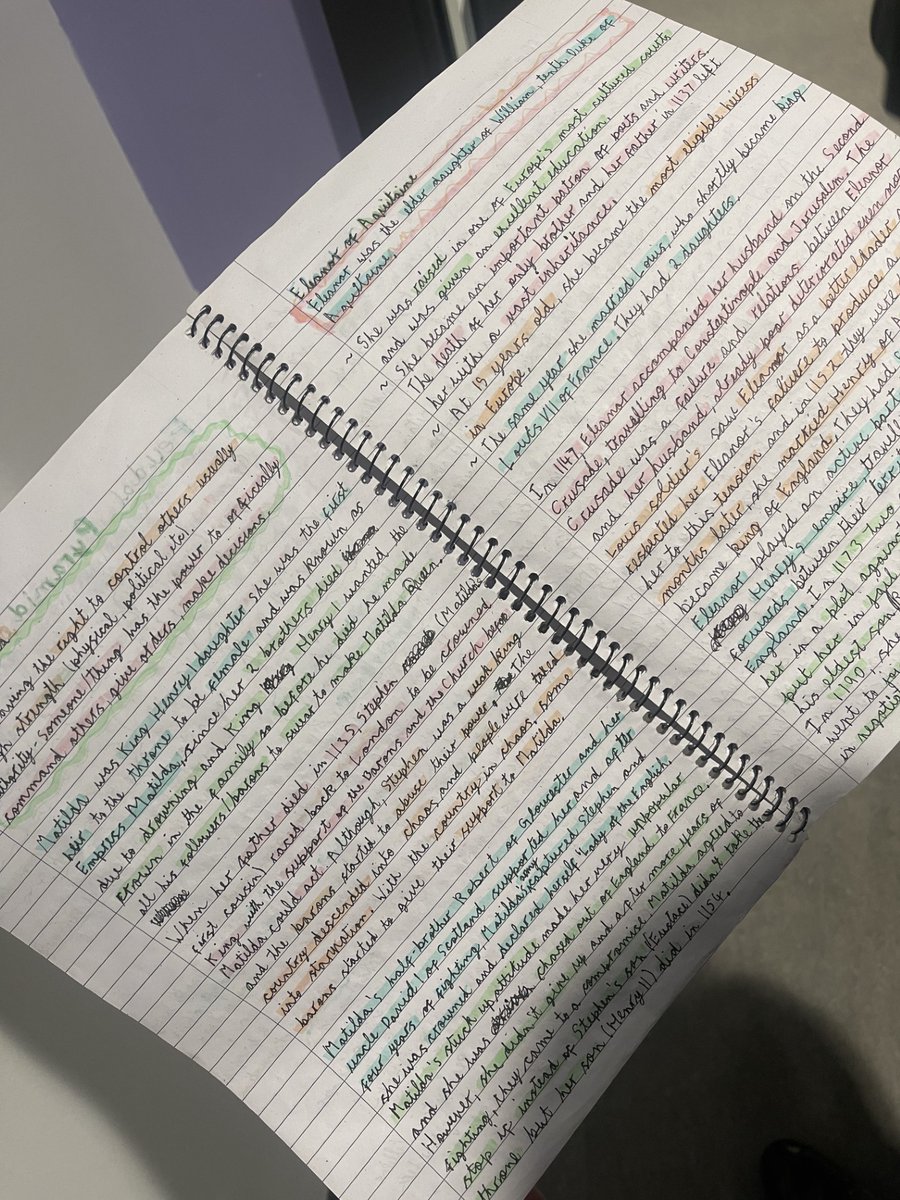 Feudal Pyramid
having the right to control others usually
strength (physical, political etc.)
Authority - Someone/thing has the power to officially
command others, give orders, make decisions.
Matilda was King Henry I daughter. She was the first
heir to the throne to be female and was known as
Empress Matilda, since her 2 brothers died
due to drowning and King Henry I wanted the
throne in the family. So before he died he made
all his followers/barons to swear to make Matilda Queen!
When her father died in 1135, Stephen (Matilda's
first cousin) raced back to London to be crowned
King with the support of the barons and the Church
Matilda could not. Although, Stephen was a weak king
and the barons started to abuse their power, the
country descended into chaos and people were talked
into starvation. With the country in chaos, some
barons started to give their support to Matilda.
Matilda's half-brother Robert of Gloucester and her
uncle David I of Scotland supported her and after
four years of fighting, Matilda's army captured Stephen and
she was crowned and declared herself "Lady of the English"
Matilda's stuck up attitude made her very unpopular
and she was chased out of England to France.
However, she didn't give up and a few more years of
fighting, they came to a compromise. Matilda agreed to
stop if instead of Stephen's son (Eustace) didn't take the
throne but her son (Henry II) did in 1154.
Eleanor of Aquitaine
Eleanor was the elder daughter of William, tenth duke of
Aquitaine
~ She was raised in one of Europe's most cultured courts
and was given an excellent education.
~ She became an important patron of poets and writers.
The death of her only brother and her father in 1137 left
her with a vast inheritance.
~ At 15 years old, she became the most eligible heiress
in Europe.
~ The same year she married Louis, who shortly became king
Louis VII of France. They had 2 daughters.
In 1147 Eleanor accompanies her husband on the Second
Crusade, travelling to Constantinople and Jerusalem. The
Crusade was a failure and relations between Eleanor
and her husband, already poor deteriorated even more
Louis soldiers saw Eleanor as a better leader
respected her. Eleanor's failure to produce a
her to this tension and in 1152 they were
months later, she married Henry of
became king of England. They had
Eleanor played an active part
Henry's empire travell
forwards between their terri
England. In 1173 two
her in a plot again
put her in jail
his eldest son
1190
went to
in negotia